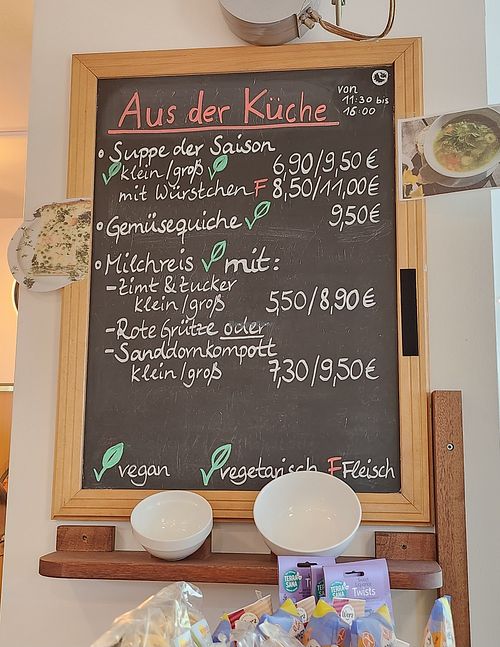 Aus der Küche
von
11:30 bis
16:00
• Suppe der Saison
klein/groß 6,90/9,50 €
mit Würstchen F 8,50/11,00 €
• Gemüsequiche 9,50 €
• Milchreis mit:
- Zimt & Zucker
klein/groß 5,50/8,90 €
- Rote Grütze oder
- Sanddornkompott
klein/groß 7,30/9,50 €
vegan vegetarisch F Fleisch
TERRA SANA
TERRA SANA
Twists